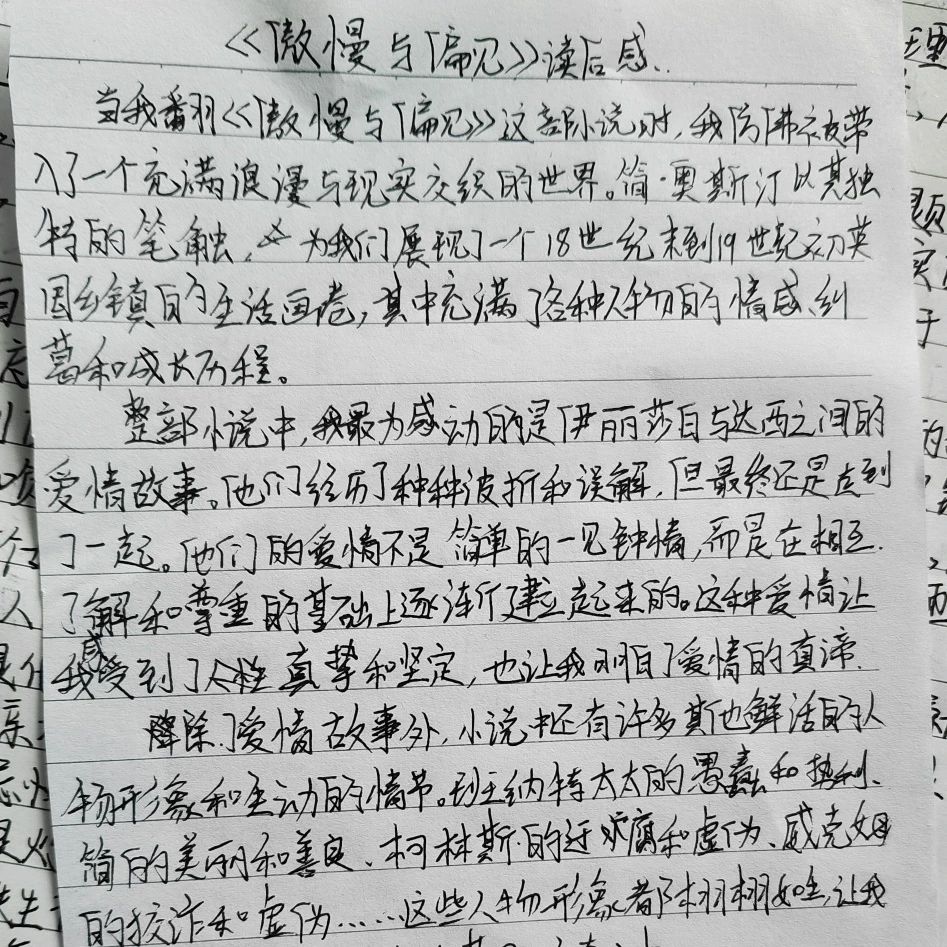 《傲慢与偏见》读后感.
当我翻《傲慢与偏见》这部小说时,我仿佛被带
入了一个充满浪漫与现实交织的世界。简·奥斯汀以其独
特的笔触,为我们展现了一个18世纪末到19世纪初英
国乡镇的生活画卷,其中充满了各种人物的情感纠
葛和成长历程。
整部小说中,我最为感动的是伊丽莎白与达西之间的
爱情故事。他们经历了种种波折和误解,但最终还是走到
了一起。他们的爱情不是简单的一见钟情,而是在相互
了解和尊重的基础上逐渐建立起来的。这种爱情让
我感受到了人性真挚和坚定,也让我明白了爱情的真谛.
除了爱情故事外,小说中还有许多其他鲜活的人
物形象和生动的情节。班纳特太太的愚蠢和势利、
简的美丽和善良、柯林斯的迂腐和虚伪、威克姆
的狡诈和虚伪……这些人物形象都栩栩如生,让我